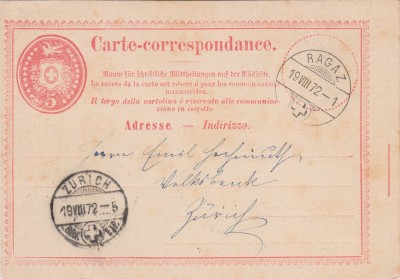 Carte-correspondance.
5
Raum für schriftliche Mittheilungen auf der Rückseite.
Le revers de la carte est réservé pour les communications
manuscrites.
Il tergo della cartolina è riservato alle comunica-
zioni in iscritto
Adresse. — Indirizzo.
RAGAZ
19 VIII 72 - 1
Herrn Emil
Volksbank
Zürich
ZÜRICH
19 VIII 72 - 5